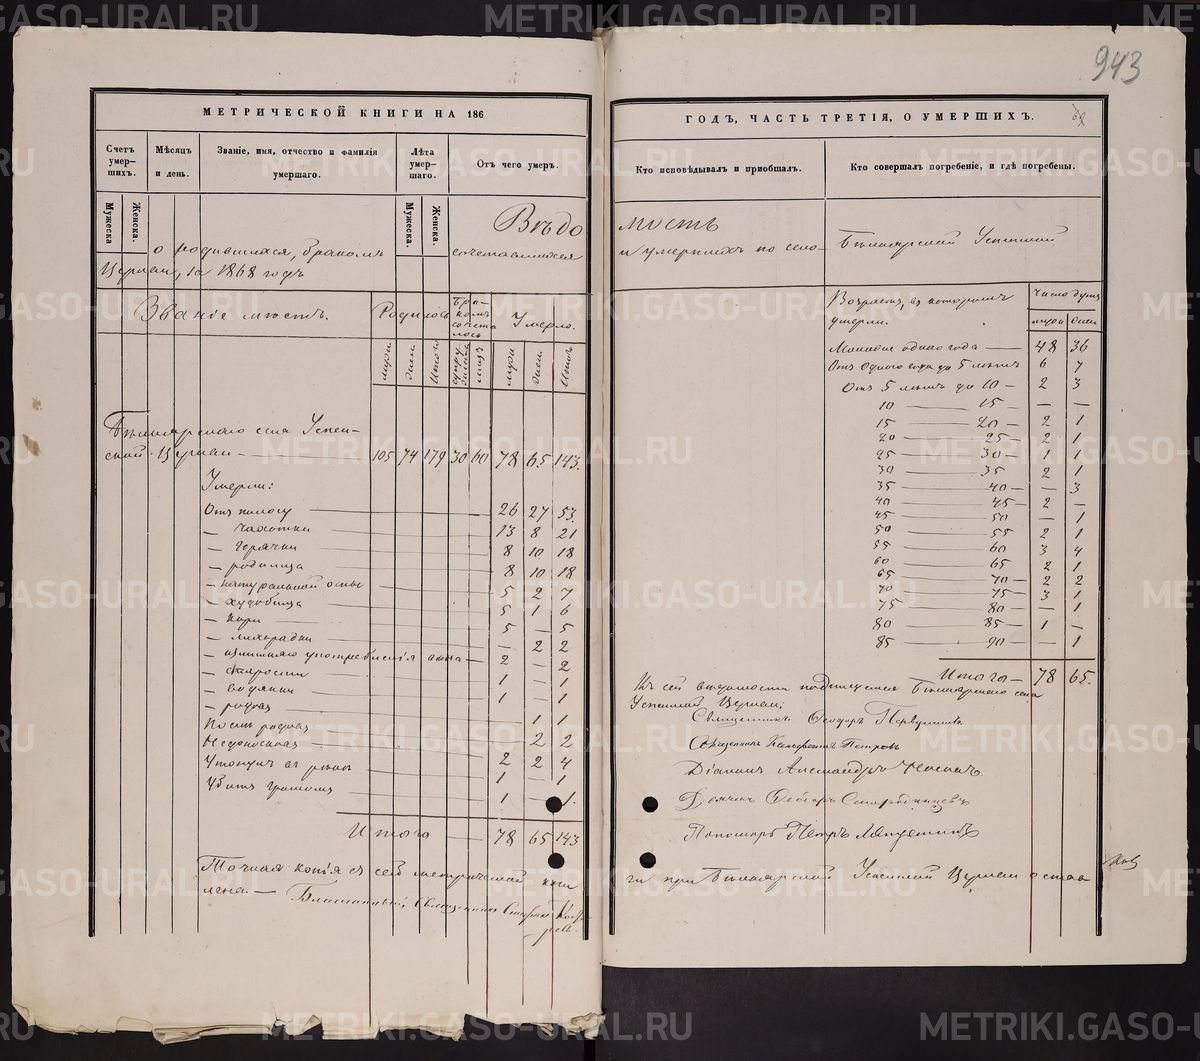 943
МЕТРИЧЕСКОЙ КНИГИ НА 186
ГОДЪ, ЧАСТЬ ТРЕТІЯ, О УМЕРШИХЪ.
Счетъ умер-шихъ.
Мѣсяцъ и день.
Званіе, имя, отчество и фамилія умершаго.
Лѣта умер-шаго.
Отъ чего умеръ.
Кто исповѣдывалъ и пріобщалъ.
Кто совершалъ погребеніе, и гдѣ погребены.
Мужеска
Женска.
Мужеска.
Женска.
Вѣдо мость
о родившихся, бракомъ сочетавшихся и умершихъ по село- Успенской
Церкви, за 1868 годъ
Званіе мѣстъ.
Родилось
Бра-комъ сочета лось
Умерло.
муж.
жен.
Итого
муж.
жен.
Итого
села Успен-
ской Церкви — 105 74 179 30 60 78 65 143.
Умерли:
Отъ поносу — 26 27 53.
— чахотки — 13 8 21
— горячки — 8 10 18
— родимца — 8 10 18
— натуральной оспы — 5 2 7
— худобища — 5 1 6
— кори — 5 — 5
— лихорадки — — 2 2
— излишняго употребленія вина — 2 — 2
— старости — 1 — 1
— водянки — 1 — 1
— родовъ — — 1 1
Послѣ родовъ — 2 2
Недоносковъ — 2 2 4
Утонулъ въ рѣкѣ — 1 — 1
Убитъ громомъ — 1 — 1.
Итого — 78 65 143
Точная копія съ сей метрической кни
ги при Успенской Церкви остав
лена.—
Благочинный, Священникъ
Возрастъ, въ которомъ умерли.
Число душъ
муж. жен.
Моложе одного года — 48 36
Отъ Одного года до 5 лѣтъ 6 7
Отъ 5 лѣтъ до 10 — 2 3
10 — 15 — — —
15 — 20 — 2 1
20 — 25 — 2 1
25 — 30 — 1 1
30 — 35 2 1
35 — 40 — — 3
40 — 45 — 2 —
45 — 50 — 1
50 — 55 2 1
55 — 60 3 4
60 — 65 2 1
65 — 70 — 2 2
70 — 75 — 3 1
75 — 80 — — 1
80 — 85 — 1 —
85 — 90 — — 1
Итого — 78 65.
Къ сей вѣдомости подписуемся села
Успенской Церкви:
Священникъ Ѳеодоръ
Священникъ Петровъ
Діаконъ Александръ
Дьячекъ Стародинцевъ
Пономарь Петръ
METRIKI.GASO-URAL.RU